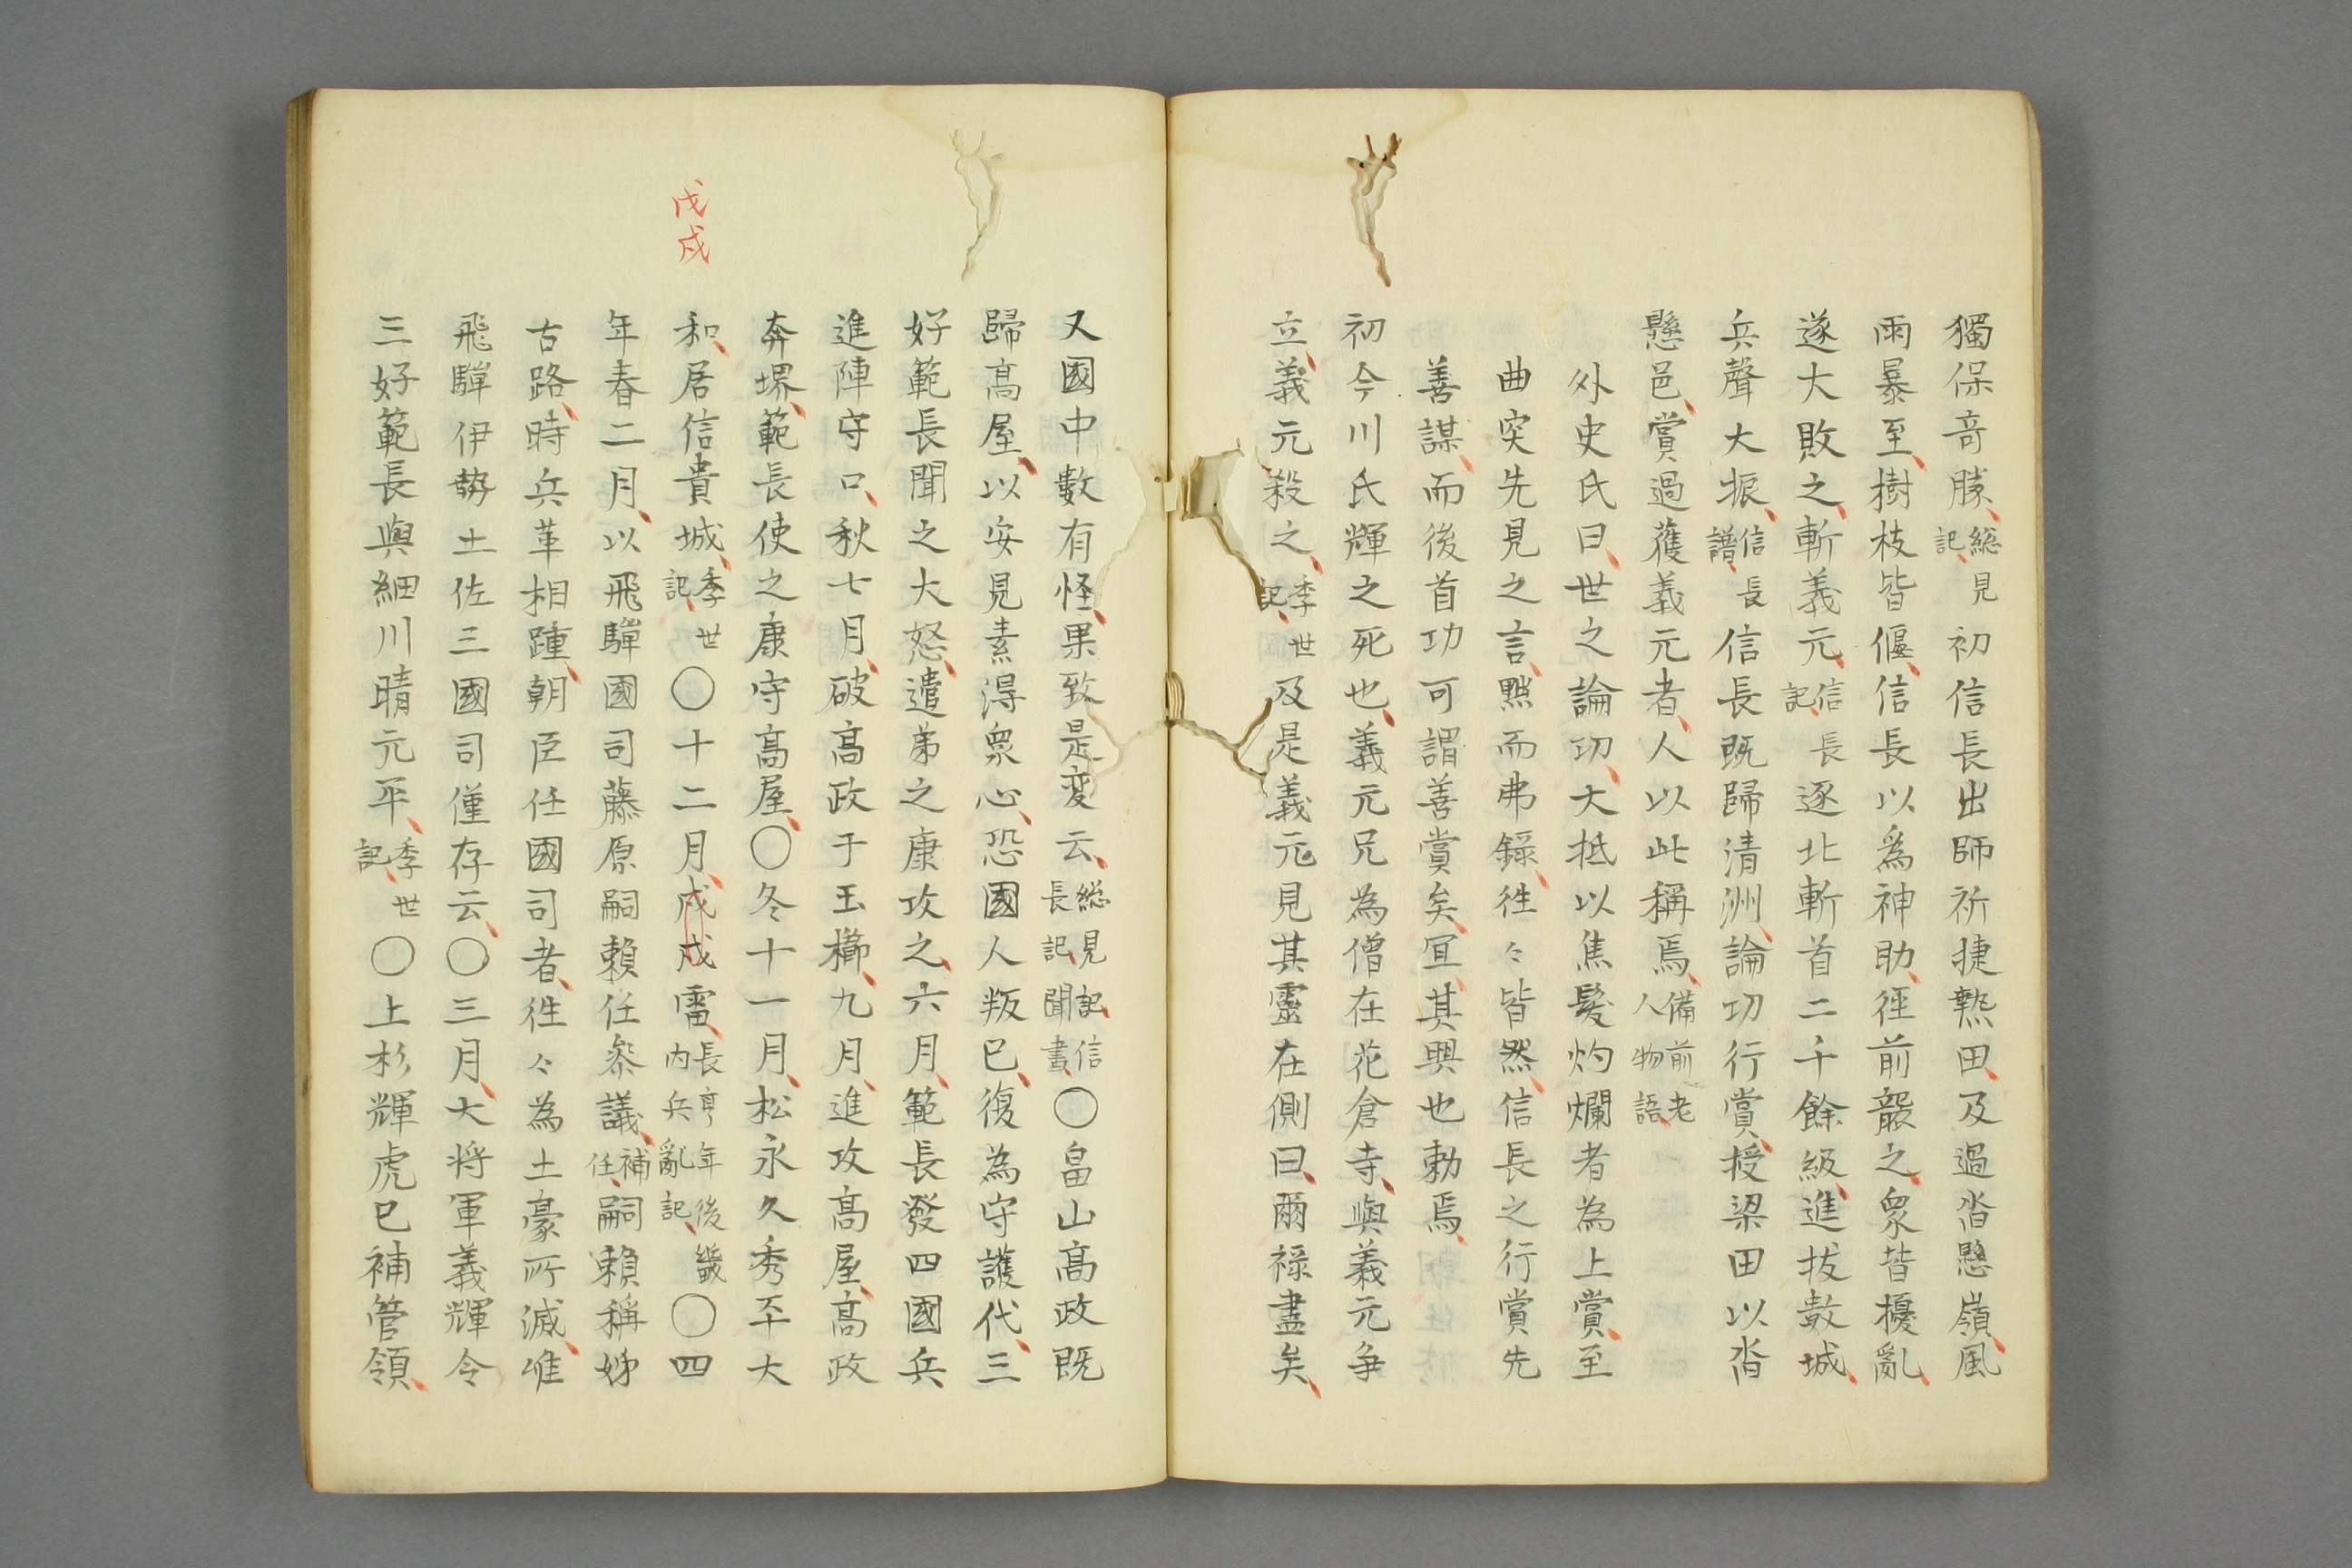 獨保竒勝、総見記、初信長出師祈捷熱田、及過沓懸嶺、風
雨暴至、樹枝皆偃、信長以爲神助、徑前襲之、衆皆擾亂、
遂大敗之、斬義元、信長記、逐北斬首二千餘級、進拔數城、
兵聲大振、信長譜、信長既歸清洲、論功行賞、授梁田以沓
懸邑、賞過獲義元者、人以此稱焉、備前老人物語、
外史氏曰、世之論功、大抵以焦髮灼爛者為上賞、至
曲突先見之言、黙而弗錄、徃々皆然、信長之行賞先
善謀、而後首功可謂善賞矣、冝、其興也勃焉、
初今川氏輝之死也、義元兄為僧在花倉寺、與義元争
立、義元殺之、季世記、及是義元見其靈在側曰、爾祿盡矣、
又國中數有怪、果致是変云、総見記、信長記、聞書、〇畠山髙政既
歸髙屋、以安見素得衆心、恐國人叛已、復為守護代、三
好範長聞之大怒、遣弟之康攻之、六月、範長發四國兵
進陣守口、秋七月、破髙政于玉櫛、九月、進攻髙屋、髙政
奔堺、範長使之康守髙屋、〇冬十一月、松永久秀平大
和、居信貴城、季世記、〇十二月、戍戊雷、長享年後畿内兵亂記、〇四
戊戍
年春二月、以飛驒國司藤原嗣賴任叅議、補任、嗣賴稱姉
古路、時兵革相踵、朝臣任國司者、徃々為土豪所滅、唯
飛驒伊勢土佐三國司僅存云、〇三月、大将軍義輝令
三好範長與細川晴元平、季世記、〇上杉輝虎已補管領、